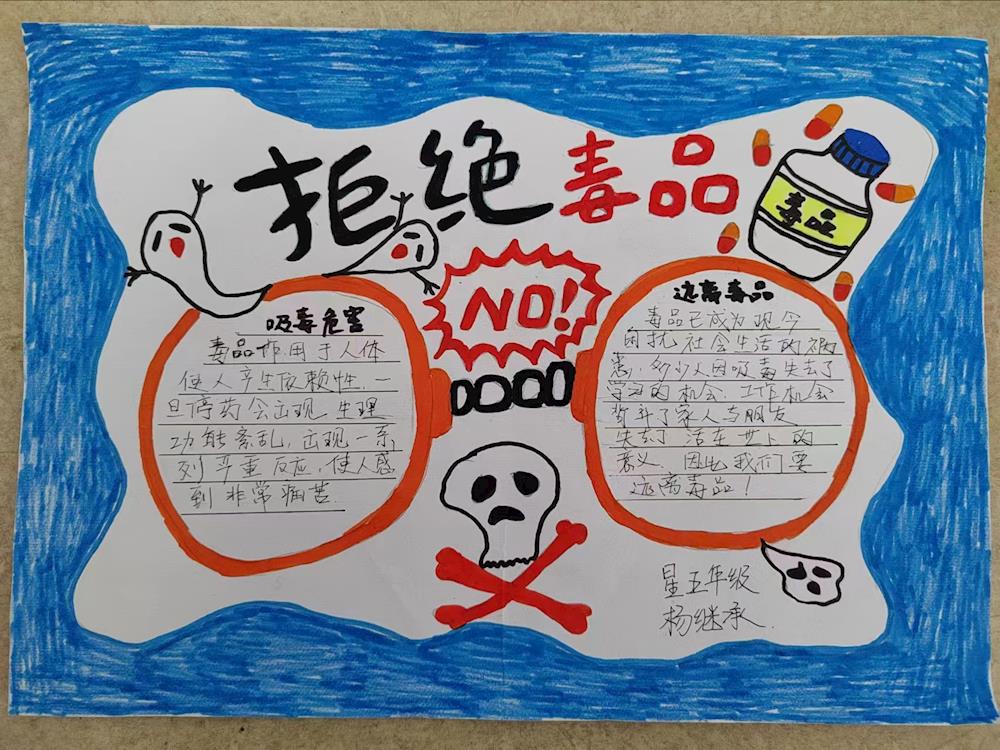 拒绝毒品
毒品
NO!
吸毒危害
毒品作用于人体
使人产生依赖性,一
旦停药会出现生理
功能紊乱,出现一系
列严重反应,使人感
到非常痛苦.
远离毒品
毒品已成为现今
困扰社会生活的祸
患,多少人因吸毒失去了
学习的机会.工作机会
暂斗了家人与朋友
失去了活在世上的
意义.因此我们要
远离毒品!
星五年级
杨继承